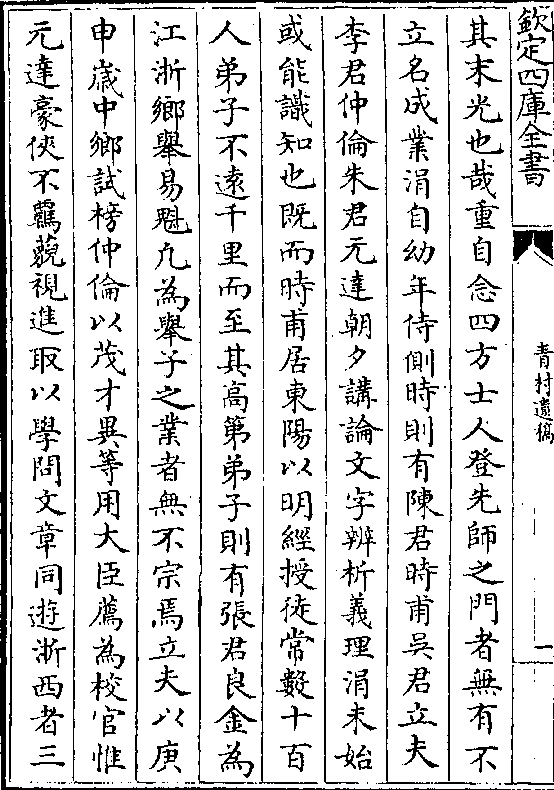 欽定四庫全書
青村遺稿
一
其末光也哉重自念四方士人登先師之門者無有不
立名成業涓自幼年侍側時則有陳君時甫吳君立夫
李君仲倫朱君元達朝夕講論文字辨析義理涓未始
或能識知也既而時甫居東陽以明經授徒常數十百
人弟子不遠千里而至其高第弟子則有張君良金為
江浙鄉舉易魁凡為舉子之業者無不宗焉立夫以庚
申嵗中鄉試榜仲倫以茂才異等用大臣薦為校官惟
元達豪俠不羈藐視進取以學問文章同遊浙西者三